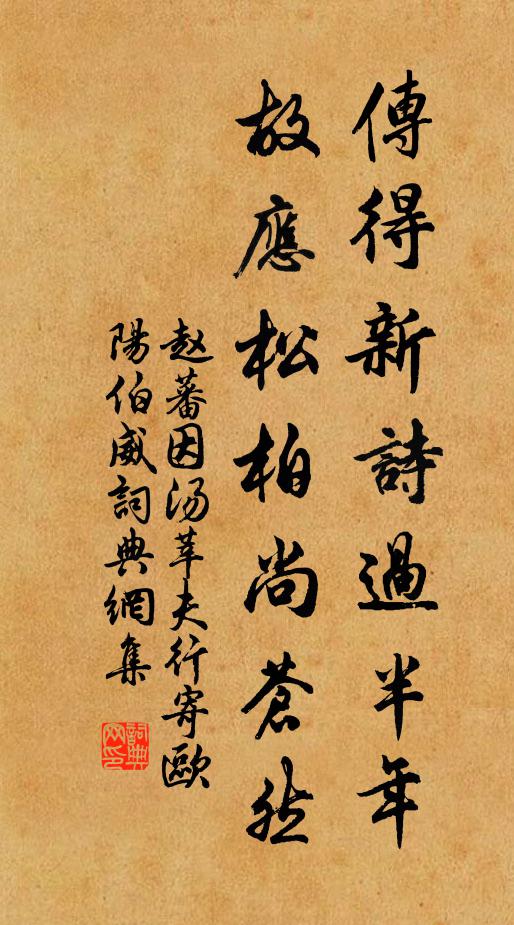 傳得新詩過半年
故應松柏尚蒼然
赵蕃因汤莘夫行寄歐
陽伯威詞典網集
詞典
网印